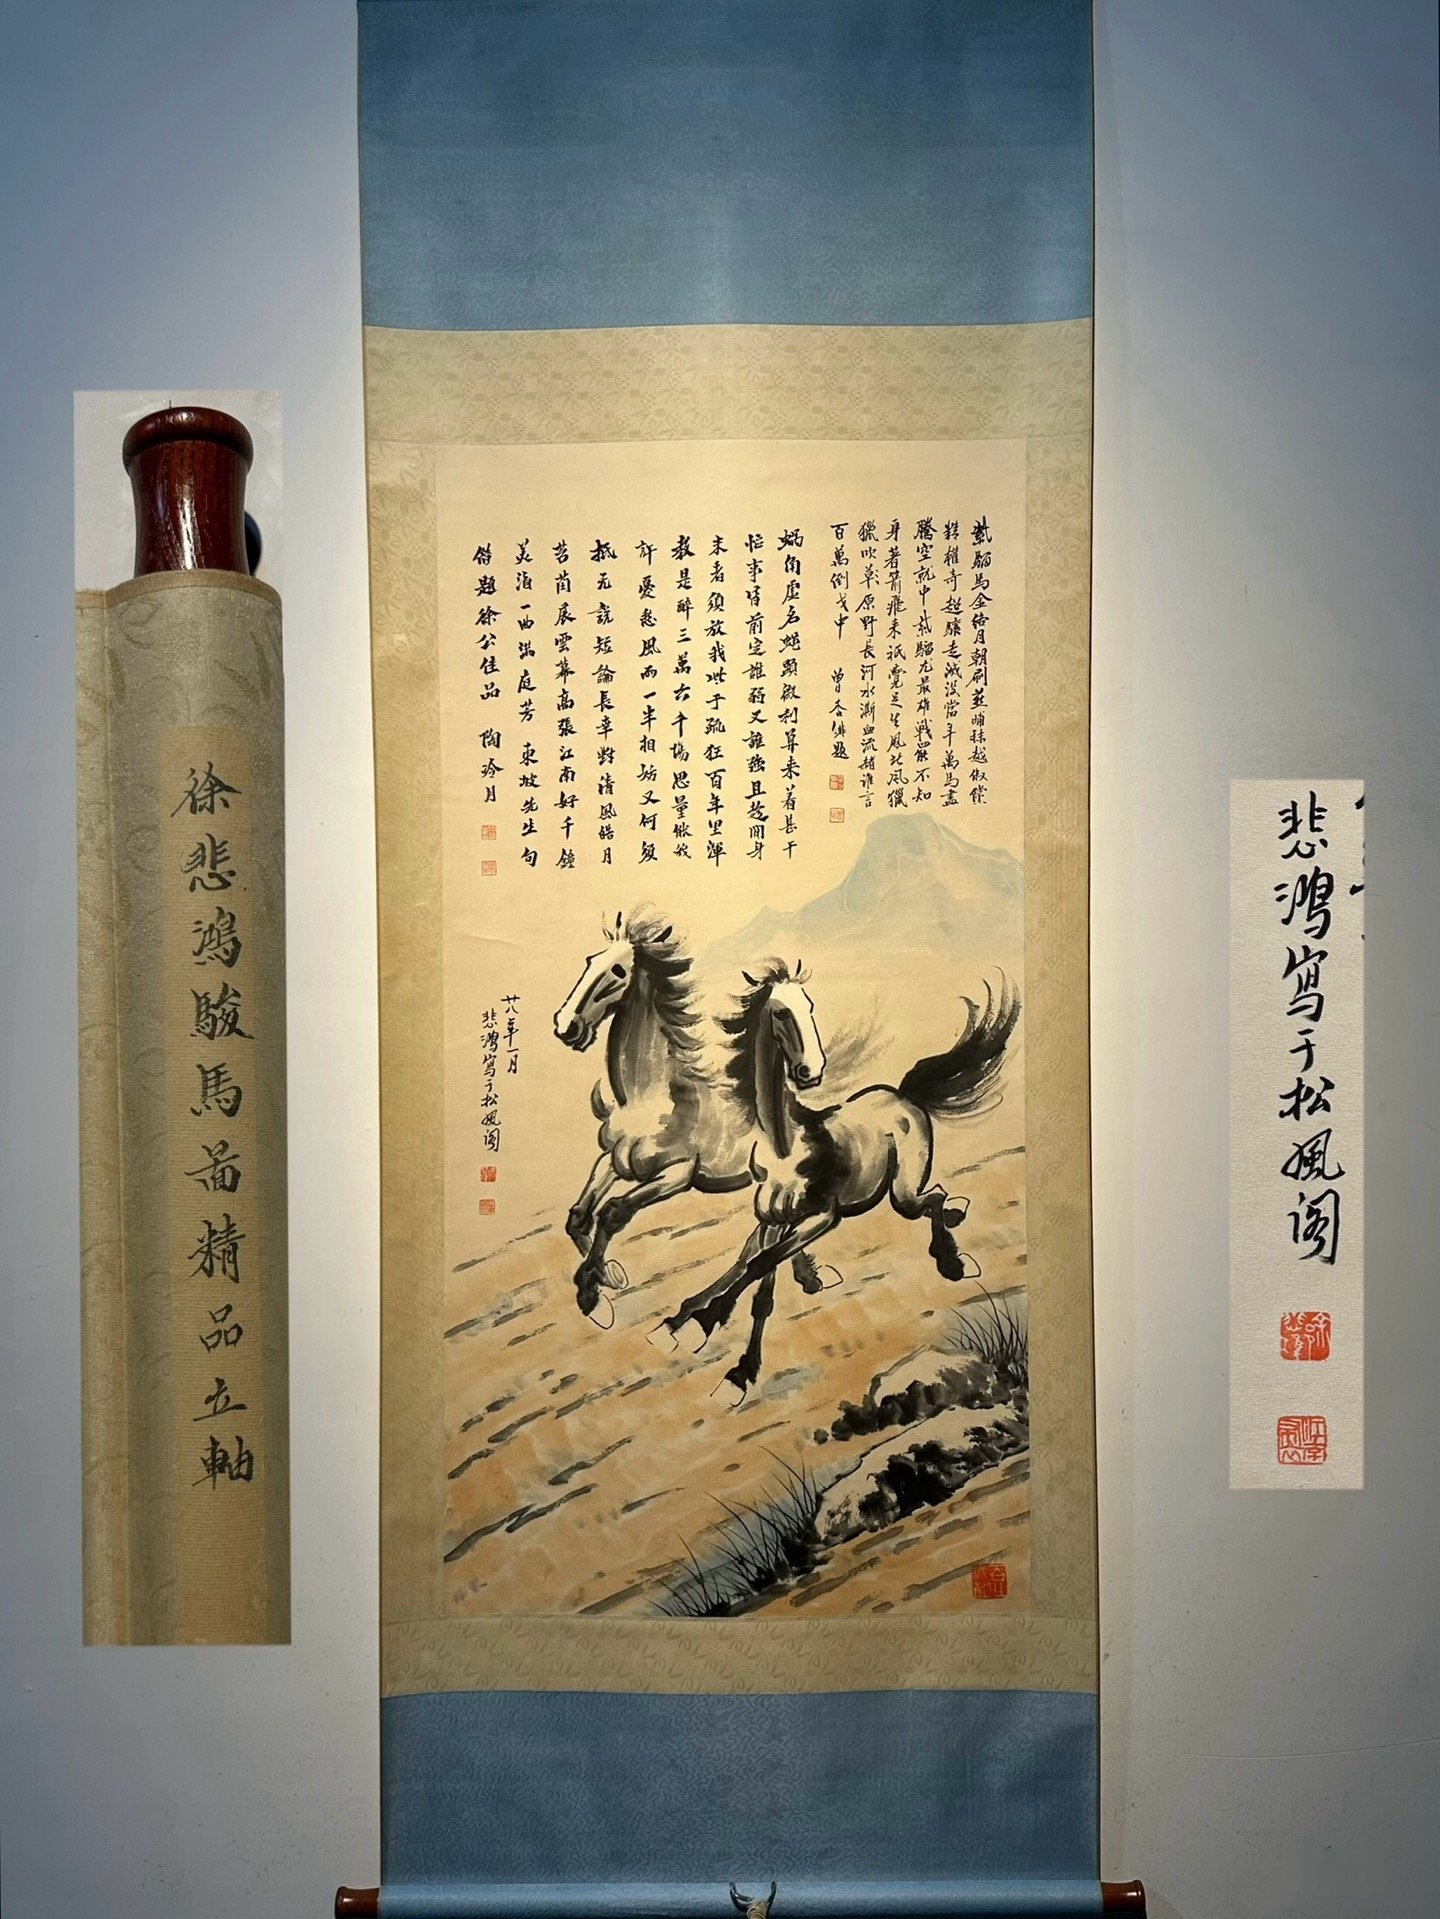 徐悲鴻駿馬圖精品立軸
紫騮馬金絡月朝刷燕晡秣越俶儻
精權奇超驤走滅没當年萬馬盡
騰空就中紫騮尤最雄戰罷不知
身著箭飛来祇覺足生風北風獵
獵吹草原野長河水漸血流赭誰言
百萬倒戈中
蝸角虛名蠅頭微利算来着甚干
忙事皆前定誰弱又誰強且趁閒身
未老須放我些子疏狂百年里渾
教是醉三萬六千場思量能幾
許憂愁風雨一半相妨又何須
抵死說短論長幸對清風皓月
苔茵展雲幕高張江南好千鐘
美酒一曲滿庭芳 東坡先生句
徐公佳品 陶冷月
廿八年一月
悲鴻寫于松風阁
悲鴻寫于松風阁